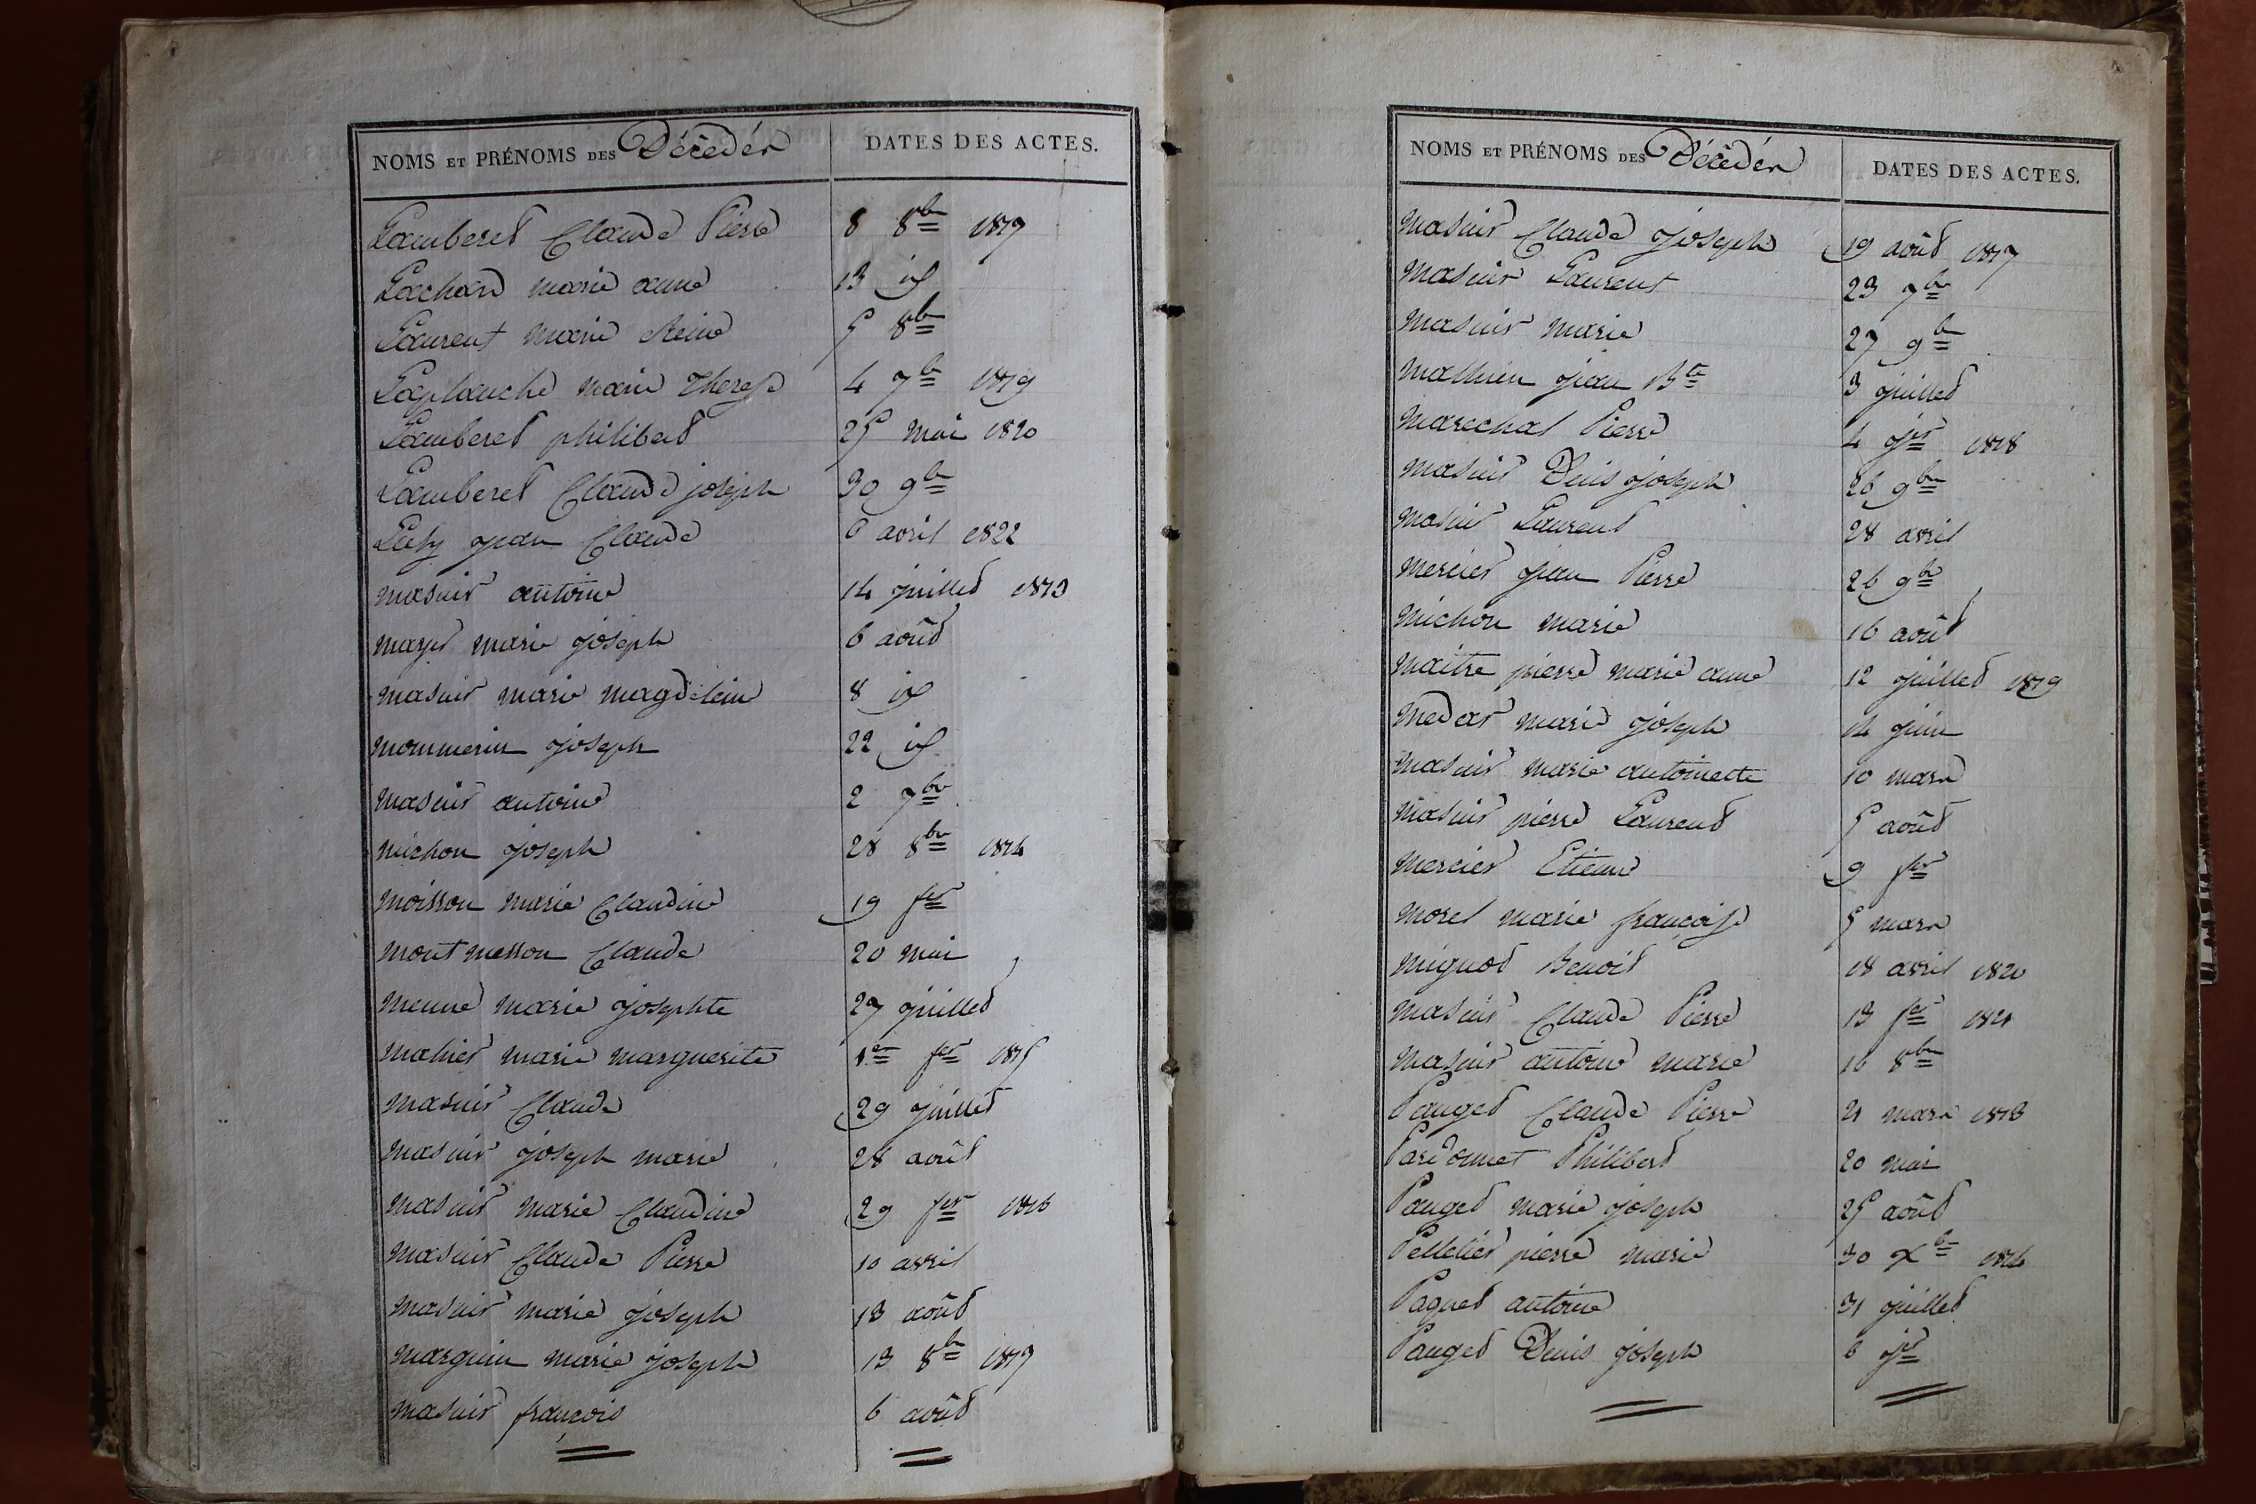 NOMS ET PRÉNOMS DES Décédés
DATES DES ACTES.
Lamberet Claude Pierre 8 8bre 1819
Lachard marie anne 13 id
Laurent marie Reine 5 8bre
Laplanche marie Therese 4 7bre 1819
Lamberet philibert 25 mai 1820
Lamberet Claude joseph 30 9bre
jean Claude 6 avril 1822
masuir antoine 14 juillet 1813
mayet marie joseph 6 août
masuir marie magdelein 8 id
mommerin joseph 22 id
masuir antoine 2 7bre
michon joseph 28 8bre 1814
moisson marie Claudine 19 fer
montmesson Claude 20 mai
menne marie josephte 27 juillet
mahier marie marguerite 1er fer 1815
masuir Claude 29 juillet
masuir joseph marie 28 août
masuir marie Claudine 29 fer 1816
masuir Claude Pierre 10 avril
masuir marie joseph 13 août
marguin marie joseph 13 8bre 1817
masuir françois 6 août
NOMS ET PRÉNOMS DES Décédés
DATES DES ACTES.
masuir Claude joseph 19 août 1817
masuir Laurent 23 7bre
masuir marie 27 9bre
mathieu jean Bte 3 juillet
marechal Pierre 4 jer 1818
masuir Denis joseph 26 9bre
masuir Laurent 28 avril
mercier jean Pierre 26 9bre
michon marie 16 août
maitre pierre marie anne 12 juillet 1819
medar marie joseph 14 juin
masuir marie antoinette 10 mars
masuir pierre Laurent 5 août
mercier Etienne 9 fer
morel marie françoise 5 mars
mignot Benoit 18 avril 1820
masuir Claude Pierre 13 fer 1821
masuir antoine marie 16 8bre
Pauget Claude Pierre 21 mars 1813
Pardonnet Philibert 20 mai
Pauget marie joseph 25 août
Pelletier pierre marie 30 Xbre 1814
Paquet antoine 31 juillet
Pauget Denis joseph 6 jer